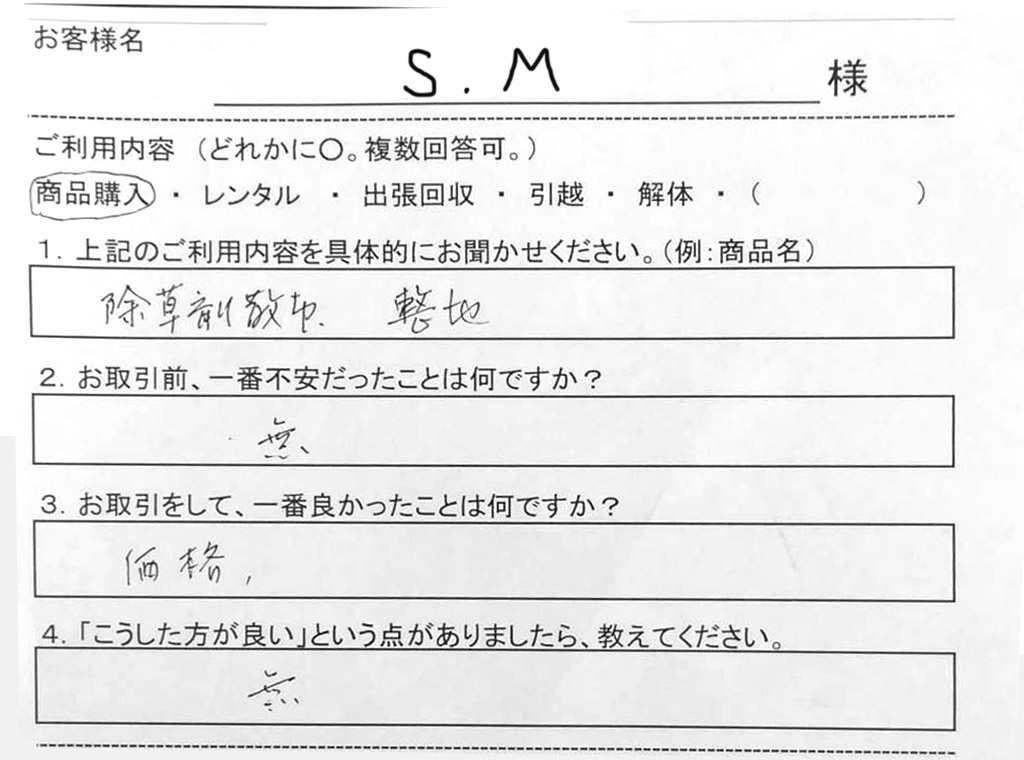 お客様名
S.M 様
ご利用内容 （どれかに〇。複数回答可。）
商品購入 ・ レンタル ・ 出張回収 ・ 引越 ・ 解体 ・ （ ）
１．上記のご利用内容を具体的にお聞かせください。（例：商品名）
除草剤散布、 整地
２．お取引前、一番不安だったことは何ですか？
無、
３．お取引をして、一番良かったことは何ですか？
価格，
４．「こうした方が良い」という点がありましたら、教えてください。
無、